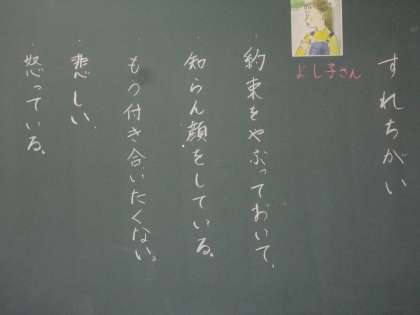 すれちがい
よし子さん
・約束をやぶっておいて、
・知らん顔をしている。
・もう付き合いたくない。
・悲しい、
・怒っている。